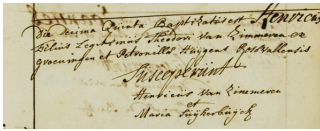 Die decima Quinta Baptizatus est Henricus
filius Legitimus Theodori van Zimmeren ex
groeningen et Petronilla Huijgens
Susceperunt
Henricus van Zimmeren
et
Maria